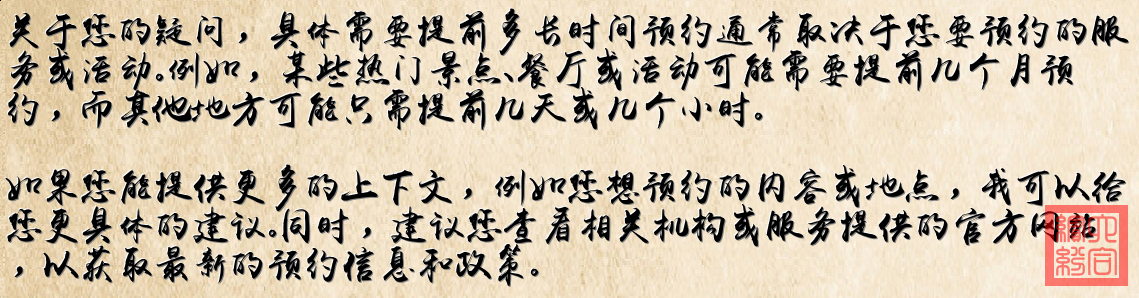 关于您的疑问，具体需要提前多长时间预约通常取决于您要预约的服
务或活动。例如，某些热门景点、餐厅或活动可能需要提前几个月预
约，而其他地方可能只需提前几天或几个小时。
如果您能提供更多的上下文，例如您想预约的内容或地点，我可以给
您更具体的建议。同时，建议您查看相关机构或服务提供的官方网站
，以获取最新的预约信息和政策。